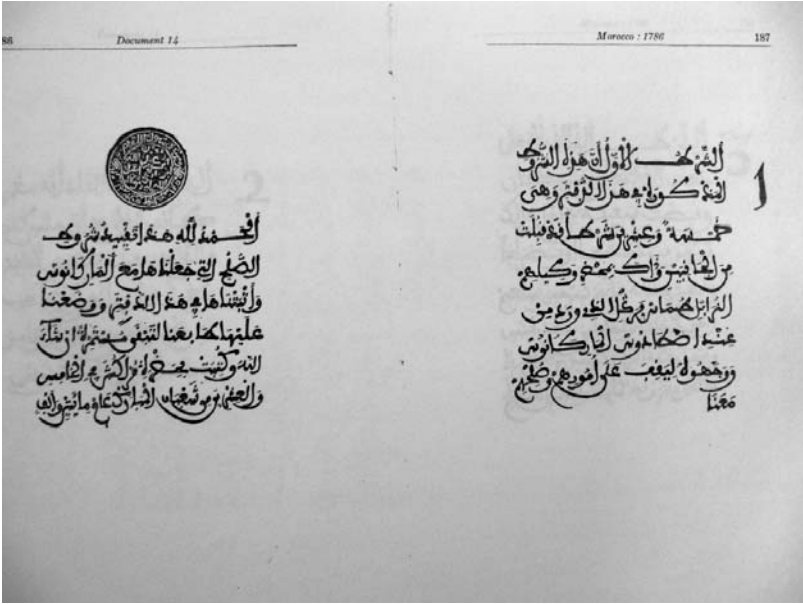 86 Document 14
الحمد لله هذا تقييد شروط
الصلح التي جعلناها مع المركانوس
واثبتناها في هذا الدفتر ووضعنا
عليها طابعنا لتبقى مستمرة ان شاء
الله وكتبت في الخامس
والعشرين من شعبان المبارك عام مايتين والف
Morocco : 1786 187
1
الشرط الاول ان هذه الشروط
المذكورة في هذا الدفتر وهي
خمسة وعشرين شرطا قد قبلت
من الجانبين وذاك بمحضر وكيلهم
طماس بركل الذي ورد من
عند اصطادوس المركانوس
ووجهوه ليقف على امورهم وصلحهم
معنا